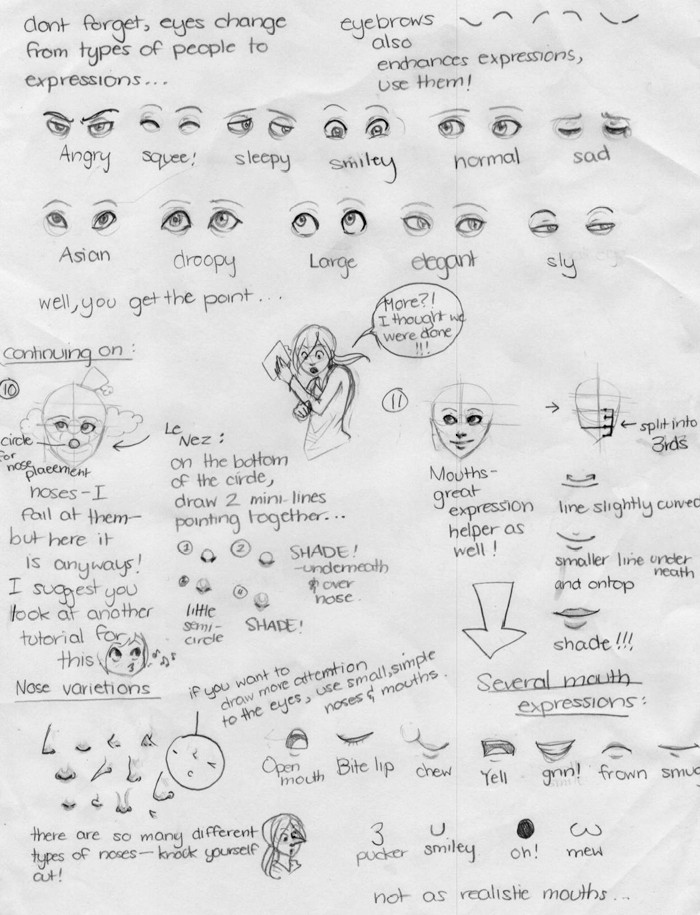 dont forget, eyes change
from types of people to
expressions...
eyebrows
also
enhances expressions,
use them!
Angry squee! sleepy smiley normal sad
Asian droopy Large elegant sly
well, you get the point...
More?!
I thought we
were done
!!!
continuing on:
10
circle
for
nose
placement
noses-I
fail at them-
but here it
is anyways!
I suggest you
look at another
tutorial for
this
Le
Nez:
on the bottom
of the circle,
draw 2 mini-lines
pointing together...
1 2 SHADE!
-underneath
& over
nose.
3 4
little
semi-
circle
SHADE!
11
Mouths-
great
expression
helper as
well!
split into
3rds
line slightly curved
smaller line under
neath
and ontop
shade!!!
Nose varietions
if you want to
draw more attention
to the eyes, use small, simple
noses & mouths.
Several mouth
expressions:
Open
mouth
Bite lip chew Yell grin! frown smug
there are so many different
types of noses-knock yourself
out!
3 U ω
pucker smiley oh! mew
not as realistic mouths...